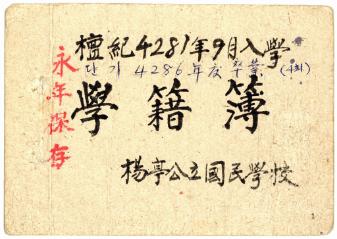 檀紀4281年9月入學
단기4286年度卒業(4회)
學籍簿
楊亭公立國民學校
永年保存